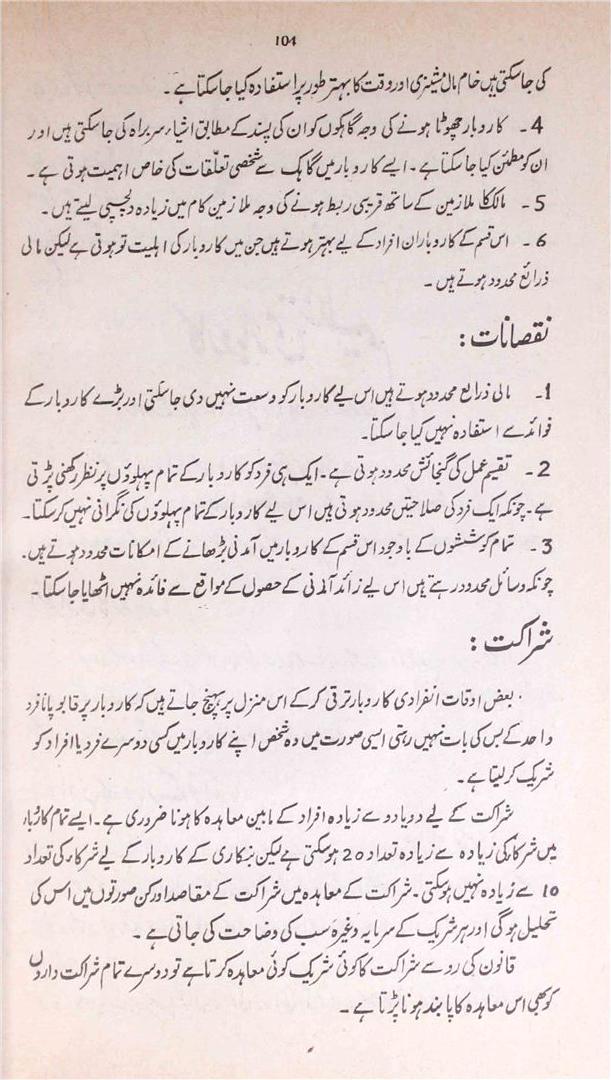 104
کی جاسکتی ہیں خام مال مشینری اور وقت کا بہتر طور پر استفادہ کیا جاسکتا ہے۔
4 - کاروبار چھوٹا ہونے کی وجہ گاہکوں کو ان کی پسند کے مطابق اشیاء سربراہ کی جاسکتی ہیں اور
ان کو مطمئن کیا جاسکتا ہے۔ ایسے کاروبار میں گاہک سے شخصی تعلّقات کی خاص اہمیت ہوتی ہے۔
5 - مالک کا ملازمین کے ساتھ قریبی ربط ہونے کی وجہ ملازمین کام میں زیادہ دلچسپی لیتے ہیں۔
6 - اس قسم کے کاروبار ان افراد کے لیے بہتر ہوتے ہیں جن میں کاروبار کی اہلیت تو ہوتی ہے لیکن مالی
ذرائع محدود ہوتے ہیں۔
نقصانات :
1- مالی ذرائع محدود ہوتے ہیں اس لیے کاروبار کو وسعت نہیں دی جاسکتی اور بڑے کاروبار کے
فوائد سے استفادہ نہیں کیا جاسکتا۔
2 - تقسیم عمل کی گنجائش محدود ہوتی ہے۔ ایک ہی فرد کو کاروبار کے تمام پہلوؤں پر نظر رکھنی پڑتی
ہے۔ چونکہ ایک فرد کی صلاحیتیں محدود ہوتی ہیں اس لیے کاروبار کے تمام پہلوؤں کی نگرانی نہیں کرسکتا۔
3 - تمام کوششوں کے باوجود اس قسم کے کاروبار میں آمدنی بڑھانے کے امکانات محدود ہوتے ہیں۔
چونکہ وسائل محدود رہتے ہیں اس لیے زائد آمدنی کے حصول کے مواقع سے فائدہ نہیں اٹھایا جاسکتا۔
شراکت :
بعض اوقات انفرادی کاروبار ترقی کرکے اس منزل پر پہنچ جاتے ہیں کہ کاروبار پر قابو پانا فرد
واحد کے بس کی بات نہیں رہتی ایسی صورت میں وہ شخص اپنے کاروبار میں کسی دوسرے فرد یا افراد کو
شریک کرلیتا ہے۔
شراکت کے لیے دو یا دو سے زیادہ افراد کے مابین معاہدہ کا ہونا ضروری ہے۔ ایسے تمام کاروبار
میں شرکار کی زیادہ سے زیادہ تعداد 20 ہوسکتی ہے لیکن بنکاری کے کاروبار کے لیے شرکار کی تعداد
10 سے زیادہ نہیں ہوسکتی۔ شراکت کے معاہدہ میں شراکت کے مقاصد اور کن صورتوں میں اس کی
تحلیل ہوگی اور ہر شریک کے سرمایہ وغیرہ سب کی وضاحت کی جاتی ہے۔
قانون کی رو سے شراکت کا کوئی شریک کوئی معاہدہ کرتا ہے تو دوسرے تمام شراکت داروں
کو بھی اس معاہدہ کا پابند ہونا پڑتا ہے۔